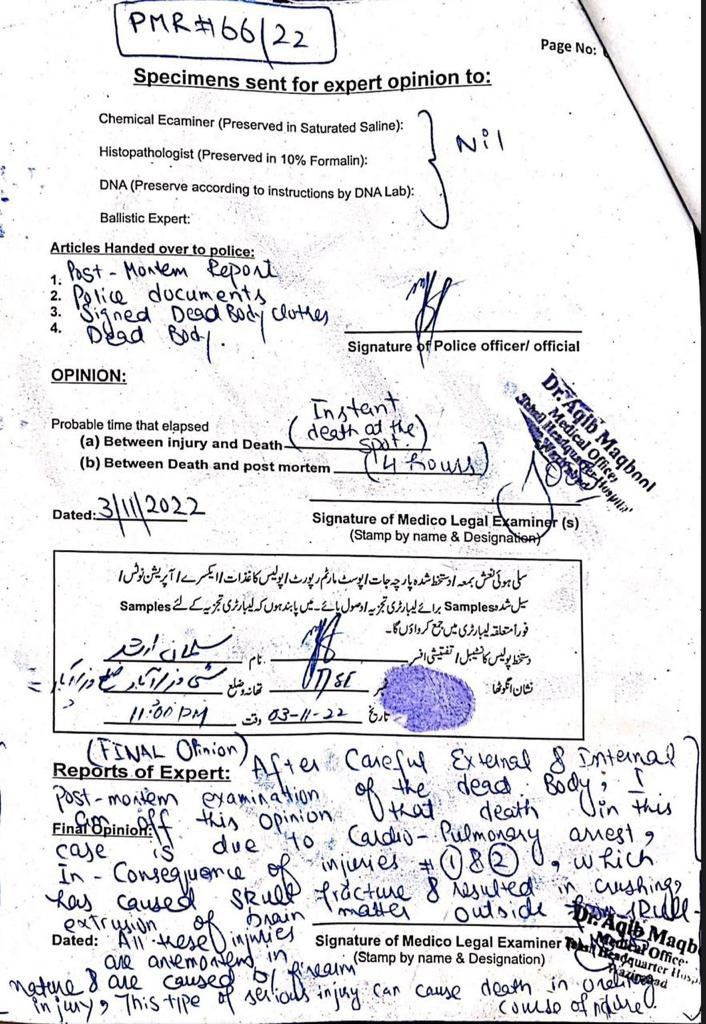 PMR#166/22
Page No:
Specimens sent for expert opinion to:
Chemical Ecaminer (Preserved in Saturated Saline):
Histopathologist (Preserved in 10% Formalin):
Nil
DNA (Preserve according to instructions by DNA Lab):
Ballistic Expert:
Articles Handed over to police:
1. Post-Mortem Report
2. Police documents
3. Signed Dead Body clothes
4. Dead Body.
Signature of Police officer/ official
OPINION:
Probable time that elapsed
(a) Between injury and Death (Instant death at the spot.)
(b) Between Death and post mortem (4 hours)
Dr. Aqib Maqbool
Medical Officer
Tehsil Headquarter Hospital
Wazirabad
Dated: 3/11/2022
Signature of Medico Legal Examiner (s)
(Stamp by name & Designation)
سلی ہوئی نعش بمعہ / دستخط شدہ پارچہ جات / پوسٹ مارٹم رپورٹ / پولیس کاغذات / ایکسرے / آپریشن نوٹس /
سیل شدہ Samples برائے لیبارٹری تجزیہ / وصول پائے۔ میں پابند ہوں کہ لیبارٹری تجزیہ کے لئے Samples
فوراً متعلقہ لیبارٹری میں جمع کرواؤں گا۔
دستخط پولیس کانسٹیبل / تفتیشی افسر نام سلمان ارشد
نشان انگوٹھا نمبر تھانہ وضلع سٹی وزیرآباد ضلع وزیرآباد
تاریخ 03-11-22 وقت 11:00 PM
(FINAL Opinion)
Reports of Expert: After Careful External & Internal
Post-mortem examination of the dead Body, I
am off this opinion that death in this
Final Opinion:
case is due to Cardio-Pulmonary arrest,
In-Consequence of injuries #① & ②, which
has caused Skull fracture & resulted in crushing,
extrusion of brain matter outside from skull-
Dated: All these injuries
Signature of Medico Legal Examiner
(Stamp by name & Designation)
Dr. Aqib Maqb
Medical Officer
Tehsil Headquarter Hosp
Wazirabad
are antemortem in
nature & are caused by firearm
injury, This type of serious injury can cause death in
course of nature